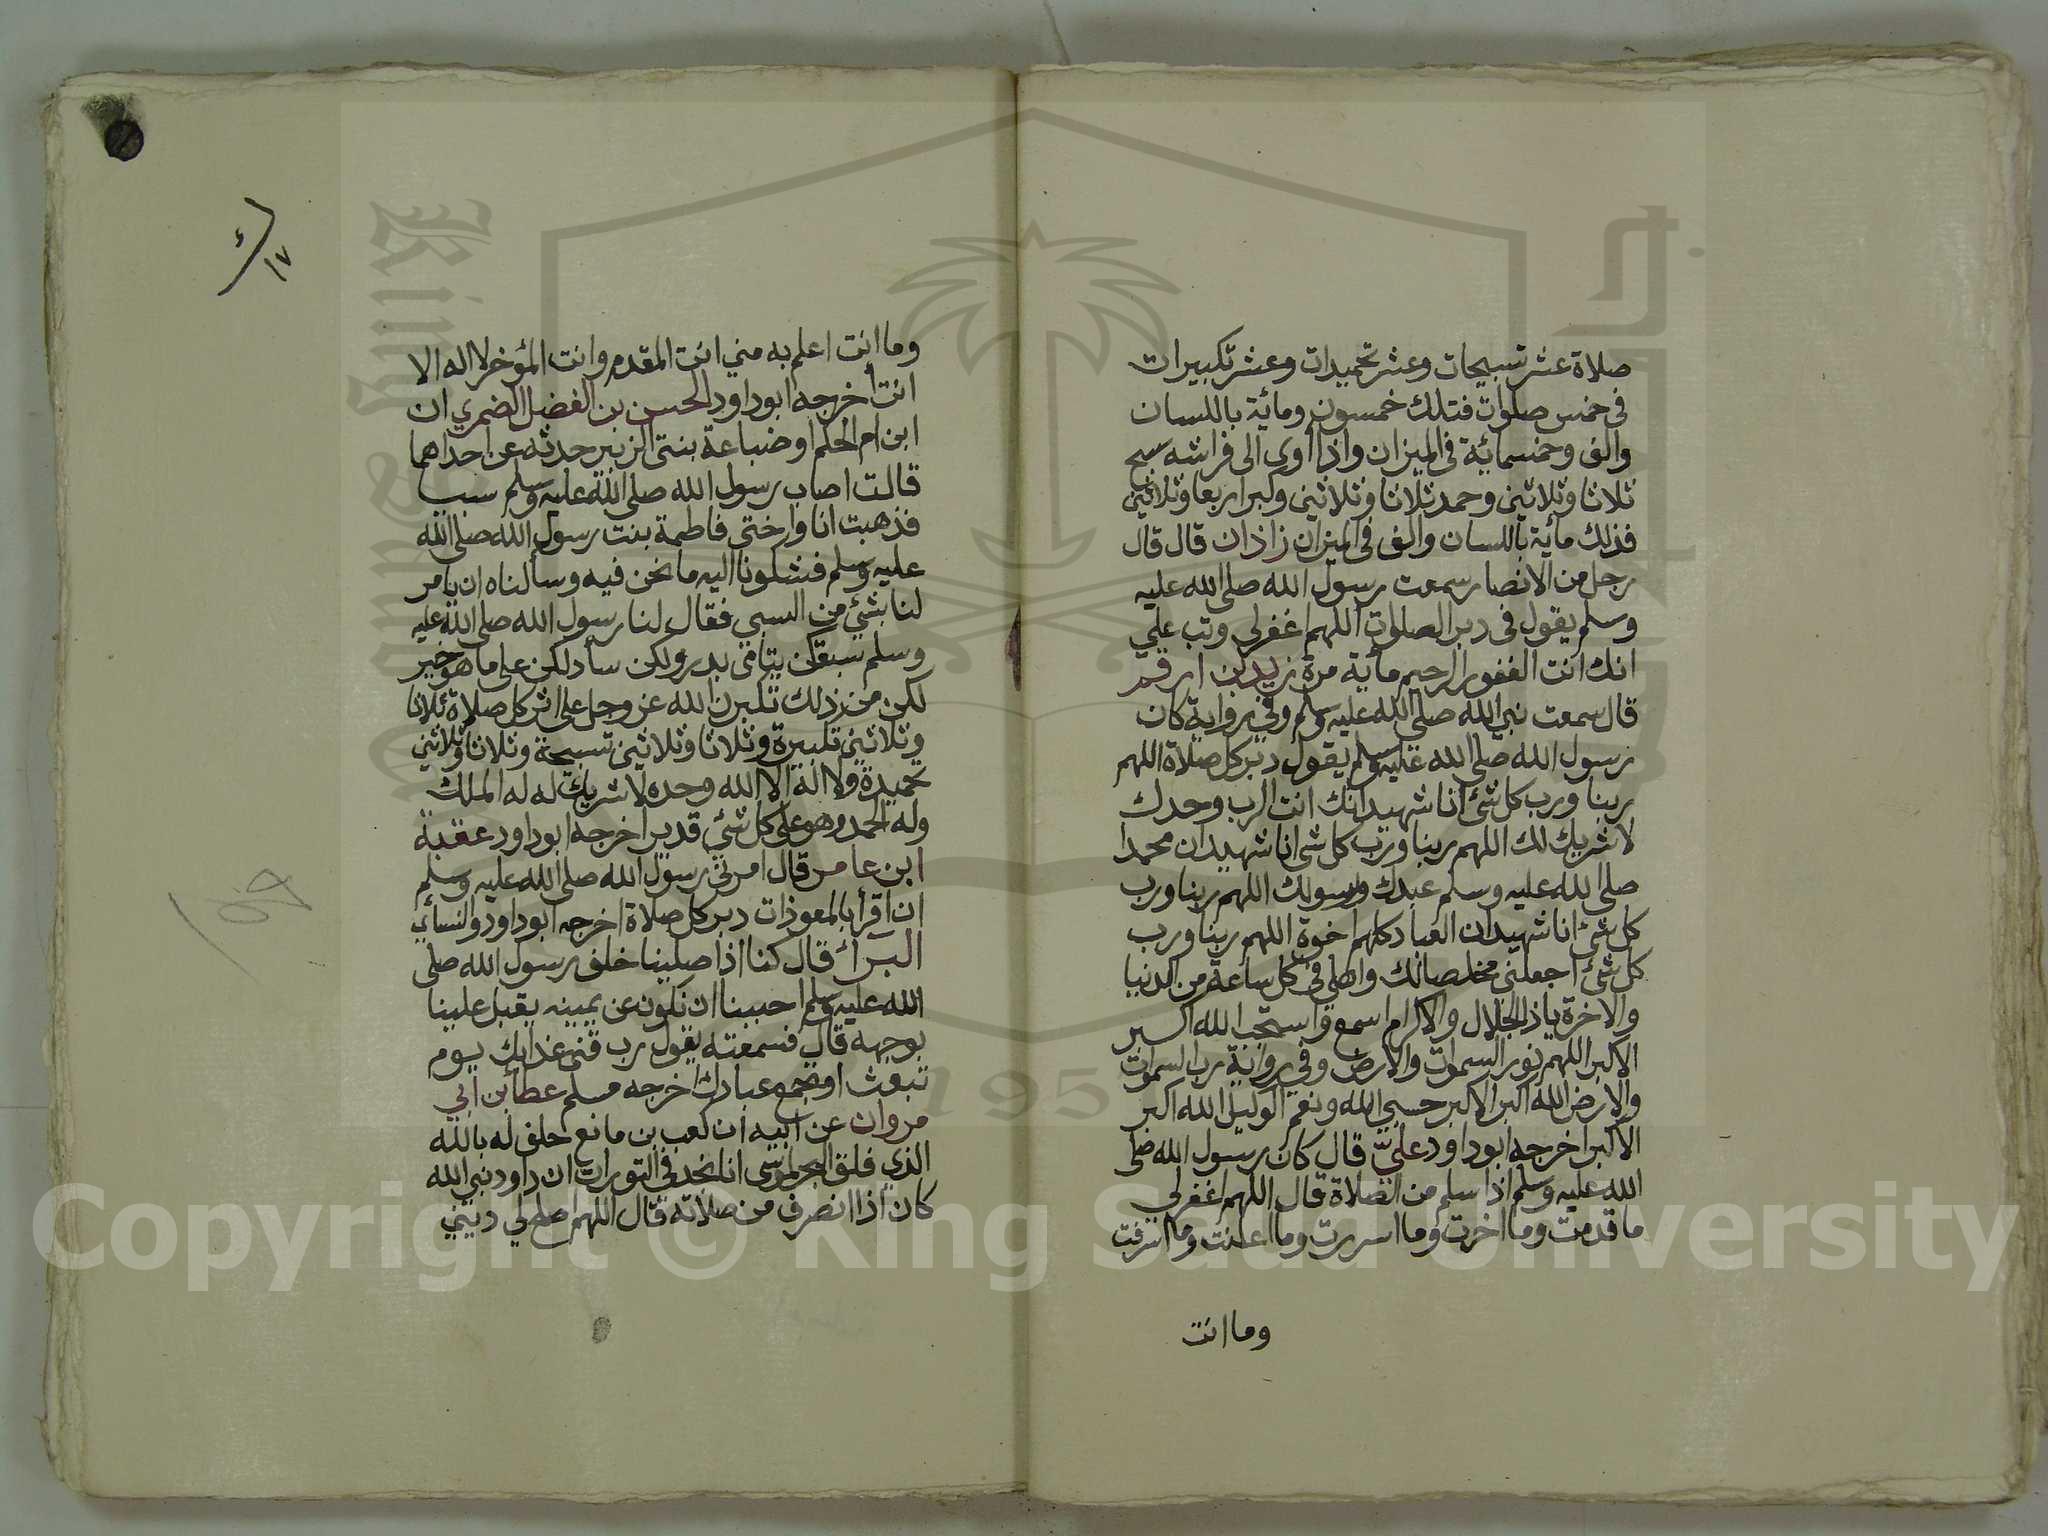 صلاة عشر تسبيحات وعشر تحميدات وعشر تكبيرات
في خمس صلوات فتلك خمسون ومائة باللسان
والف وخمسمائة في الميزان واذا أوى الى فراشه سبح
ثلاثا وثلاثين وحمد ثلاثا وثلاثين وكبر اربعا وثلاثين
فذلك مائة باللسان والف في الميزان زاذان قال قال
رجل من الانصار سمعت رسول الله صلى الله عليه
وسلم يقول في دبر الصلوات اللهم اغفر لي وتب علي
انك انت الغفور الرحيم مائة مرة زيد بن ارقم
قال سمعت نبي الله صلى الله عليه وسلم وفي رواية كان
رسول الله صلى الله عليه وسلم يقول دبر كل صلاة اللهم
ربنا ورب كل شئ انا شهيد انك انت الرب وحدك
لا شريك لك اللهم ربنا ورب كل شئ انا شهيد ان محمدا
صلى الله عليه وسلم عبدك ورسولك اللهم ربنا ورب
كل شئ انا شهيد ان العباد كلهم اخوة اللهم ربنا ورب
كل شئ اجعلني مخلصا لك واهلي في كل ساعة من الدنيا
والاخرة ياذا الجلال والاكرام اسمع واستجب الله اكبر
الاكبر اللهم نور السموات والارض وفي رواية رب السموات
والارض الله اكبر الاكبر حسبي الله ونعم الوكيل الله اكبر
الاكبر اخرجه ابو داود علي قال كان رسول الله صلى
الله عليه وسلم اذا سلم من الصلاة قال اللهم اغفر لي
ما قدمت وما اخرت وما اسررت وما اعلنت وما اسرفت
وما انت
١٧
وما انت اعلم به مني انت المقدم وانت المؤخر لا اله الا
انت أخرجه ابو داود الحسن بن الفضل الضمري ان
ابن ام الحكم او ضباعة بنتي الزبير حدثه عن احداهما
قالت اصاب رسول الله صلى الله عليه وسلم سبيا
فذهبت انا واختي فاطمة بنت رسول الله صلى الله
عليه وسلم فشكونا اليه ما نحن فيه وسألناه ان يامر
لنا بشئ من السبي فقال لنا رسول الله صلى الله عليه
وسلم سبقكن يتامى بدر ولكن سأدلكن على ما هو خير
لكن من ذلك تكبرن الله عز وجل على اثر كل صلاة ثلاثا
وثلاثين تكبيرة وثلاثا وثلاثين تسبيحة وثلاثا وثلاثين
تحميدة ولا اله الا الله وحده لا شريك له له الملك
وله الحمد وهو على كل شئ قدير اخرجه ابو داود عقبة
ابن عامر قال امرني رسول الله صلى الله عليه وسلم
ان اقرأ بالمعوذات دبر كل صلاة اخرجه ابو داود والنسائي
البرآء قال كنا اذا صلينا خلف رسول الله صلى
الله عليه وسلم احببنا ان نكون عن يمينه يقبل علينا
بوجهه قال فسمعته يقول رب قني عذابك يوم
تبعث او تجمع عبادك اخرجه مسلم عطأ بن ابي
مروان عن ابيه ان كعب بن مانع حلف له بالله
الذي فلق البحر لموسى انا نجد في التورات ان داود نبي الله
كان اذا انصرف من صلاته قال اللهم اصلح لي ديني
Copyright © King Saud University
King Saud
1957